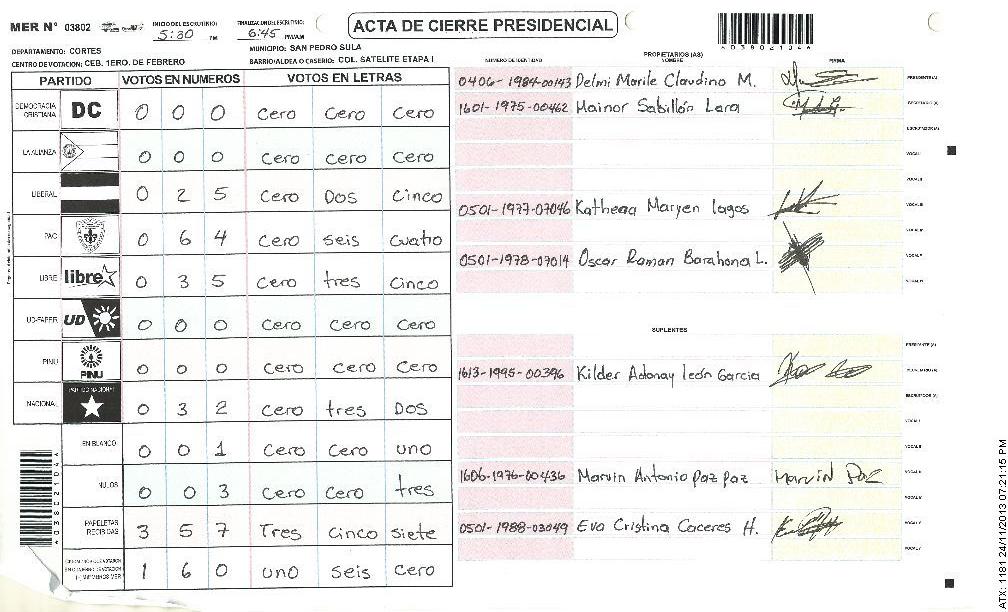 MER N° 03802 INICIO DEL ESCRUTINIO: 5:30 PM FINALIZACION DE ESCRUTINIO: 6:45 PM/AM ACTA DE CIERRE PRESIDENCIAL
DEPARTAMENTO: CORTES MUNICIPIO: SAN PEDRO SULA
CENTRO DE VOTACION: CEB. 1ERO. DE FEBRERO BARRIO/ALDEA O CASERIO: COL. SATELITE ETAPA I
PARTIDO VOTOS EN NUMEROS VOTOS EN LETRAS
DEMOCRACIA CRISTIANA DC 0 0 0 Cero Cero Cero
LA ALIANZA 0 0 0 Cero Cero Cero
LIBERAL 0 2 5 Cero Dos Cinco
PAC 0 6 4 Cero seis cuatro
LIBRE libre 0 3 5 Cero tres Cinco
UD-FAPER UD 0 0 0 Cero Cero Cero
PINU PINU 0 0 0 Cero Cero Cero
NACIONAL PARTIDO NACIONAL 0 3 2 Cero tres Dos
EN BLANCO 0 0 1 Cero Cero uno
NULOS 0 0 3 Cero Cero tres
PAPELETAS RECIBIDAS 3 5 7 Tres Cinco Siete
1 6 0 uno seis Cero
PROPIETARIOS (AS)
NUMERO DE IDENTIDAD NOMBRE FIRMA
0406-1984-00143 Delmi Marile Claudino M. PRESIDENTE(A)
1601-1975-00462 Mainor Sabillón Lara SECRETARIO(A)
ESCRUTADOR(A)
VOCAL I
VOCAL II
0501-1977-07046 Kathena Maryen lagos VOCAL III
VOCAL IV
0501-1978-07014 Oscar Raman Barahona L. VOCAL V
VOCAL VI
SUPLENTES
PRESIDENTE (A)
1613-1995-00396 Kilder Adonay león Garcia SECRETARIO(A)
ESCRUTADOR (A)
VOCAL I
VOCAL II
1606-1976-00436 Marvin Antonio paz paz Marvin Paz VOCAL III
VOCAL IV
0501-1988-03049 Eva Cristina Caceres H. VOCAL V
VOCAL VI
ATX: 1181 24/11/2013 07:21:15 PM